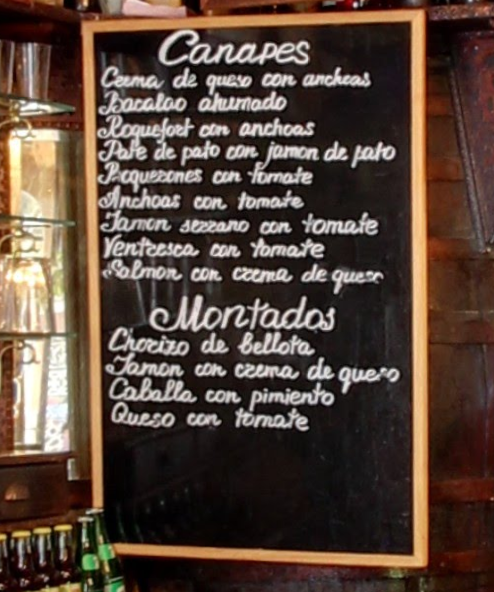 Canapes
Crema de queso con anchoas
Bacalao ahumado
Roquefort con anchoas
Pate de pato con jamon de pato
Boquerones con tomate
Anchoas con tomate
Jamon serrano con tomate
Ventresca con tomate
Salmon con crema de queso
Montados
Chorizo de bellota
Jamon con crema de queso
Caballa con pimiento
Queso con tomate